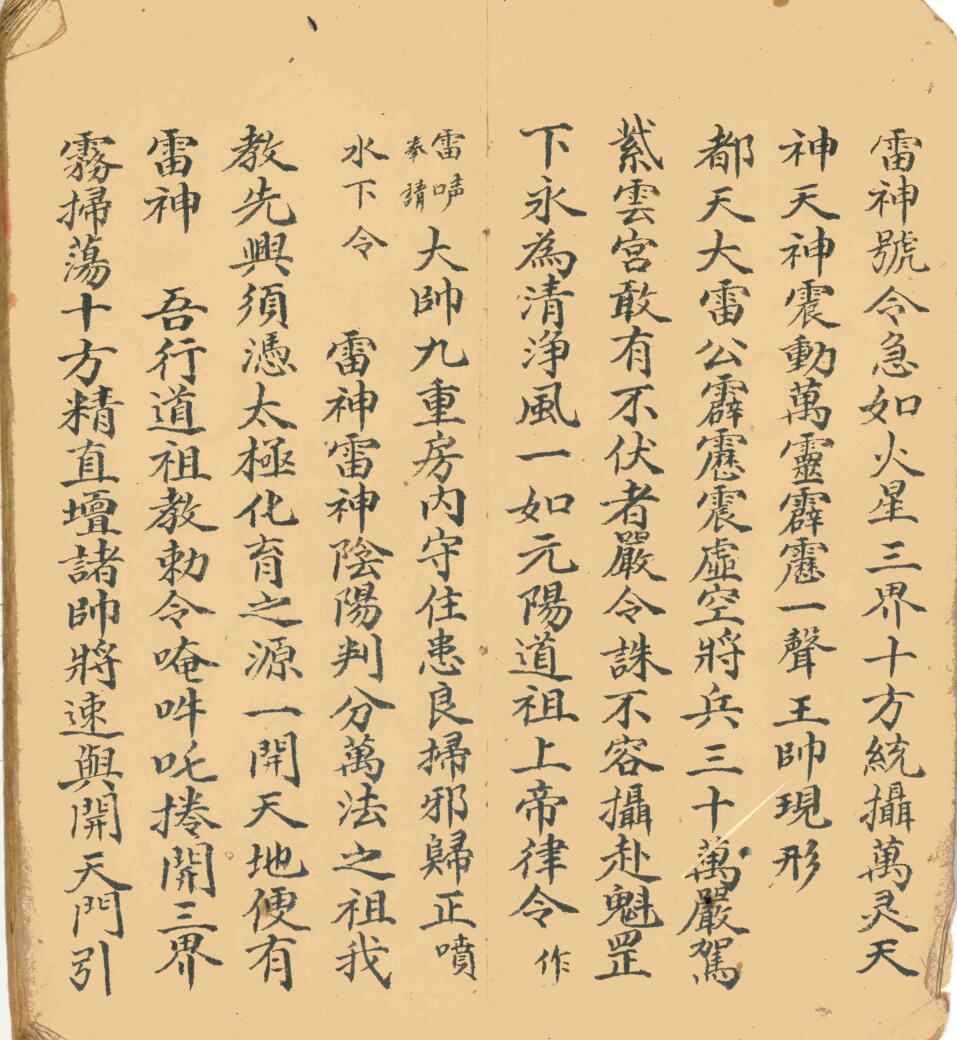 雷神號令急如火星三界十方統攝萬灵天
神天神震動萬靈霹靂一聲王帥現形
都天大雷公霹靂震虛空將兵三十萬嚴駕
紫雲宮敢有不伏者嚴令誅不容攝赴魁罡
下永為清淨風一如元陽道祖上帝律令 作
雷声奉請 大帥九重房內守住患良掃邪歸正噴
水下令 雷神雷神陰陽判分萬法之祖我
教先興須憑太極化育之源一開天地便有
雷神 吾行道祖教勅令唵吽吒捲開三界
霧掃蕩十方精直壇諸帥將速與開天門引